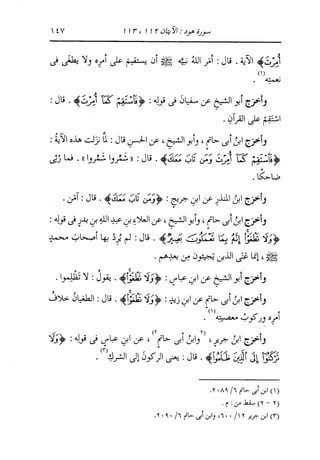 سورة هود : الآيتان ١١٢ ، ١١٣ ١٤٧
أُمِرْتَ﴾ الآية . قال : أمَر اللهُ نبيَّه ﷺ أن يستقيمَ على أمرِه ولا يطغَى فى
نعمتِه(١) .
وأخرَج أبو الشيخِ عن سفيانَ فى قولِه : ﴿فَاسْتَقِمْ كَمَا أُمِرْتَ﴾ . قال :
استقِمْ على القرآنِ .
وأخرَج ابنُ أبى حاتمٍ ، وأبو الشيخِ ، عن الحسنِ قال : لمَّا نزَلت هذه الآيةُ :
﴿فَاسْتَقِمْ كَمَا أُمِرْتَ وَمَن تَابَ مَعَكَ﴾ . قال : « شمِّروا شمِّروا » . فما رُئى
ضاحكًا .
وأخرَج ابنُ المنذرِ عن ابنِ جريجٍ : ﴿وَمَن تَابَ مَعَكَ﴾ . قال : آمَن .
وأخرَج ابنُ أبى حاتمٍ ، وأبو الشيخِ ، عن العلاءِ بنِ عبدِ اللهِ بنِ بدرٍ فى قولِه :
﴿وَلَا تَطْغَوْا إِنَّهُ بِمَا تَعْمَلُونَ بَصِيرٌ﴾ . قال : لم يُرِدْ بها أصحابَ محمدٍ
ﷺ ، إنما عَنَى الذين يَجيئون مِن بعدِهم .
وأخرَج أبو الشيخِ عن ابنِ عباسٍ : ﴿وَلَا تَطْغَوْا﴾ . يقولُ : لا تَظلِموا .
وأخرَج ابنُ أبى حاتمٍ عن ابنِ زيدٍ : ﴿وَلَا تَطْغَوْا﴾ . قال : الطغيانُ خلافُ
أمرِه وركوبُ معصيتِه(١) .
وأخرَج ابنُ جريرٍ ، (٢وابنُ أبى حاتمٍ٢) ، عن ابنِ عباسٍ فى قولِه : ﴿وَلَا
تَرْكَنُوا إِلَى الَّذِينَ ظَلَمُوا﴾ . قال : يعنى الركونَ إلى الشركِ(٣) .
(١) ابن أبى حاتم ٦/ ٢٠٨٩.
(٢ - ٢) سقط من : م .
(٣) ابن جرير ١٢/ ٦٠٠، وابن أبى حاتم ٦/ ٢٠٩٠.